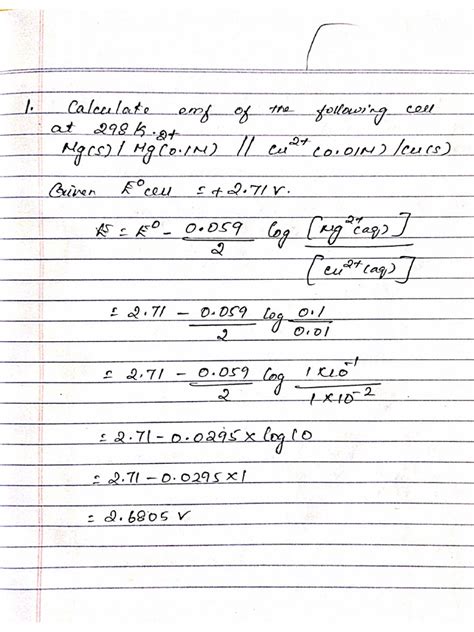 1. Calculate emf of the following cell
at 298 K.
Mg(s) | Mg²⁺(0.1M) || Cu²⁺(0.01M) | Cu(s)
Given E⁰cell = +2.71 V.
E = E⁰ - 0.059/2 log [Mg²⁺(aq)]/[Cu²⁺(aq)]
= 2.71 - 0.059/2 log 0.1/0.01
= 2.71 - 0.059/2 log 1×10⁻¹/1×10⁻²
= 2.71 - 0.0295 × log 10
= 2.71 - 0.0295 × 1
= 2.6805 V